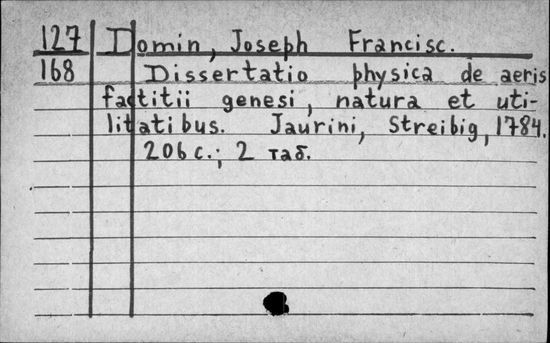 127 Domin, Joseph Francisc.
168 Dissertatio physica de aeris
factitii genesi, natura et uti-
litatibus. Jaurini, Streibig, 1784.
206 с.; 2 таб.